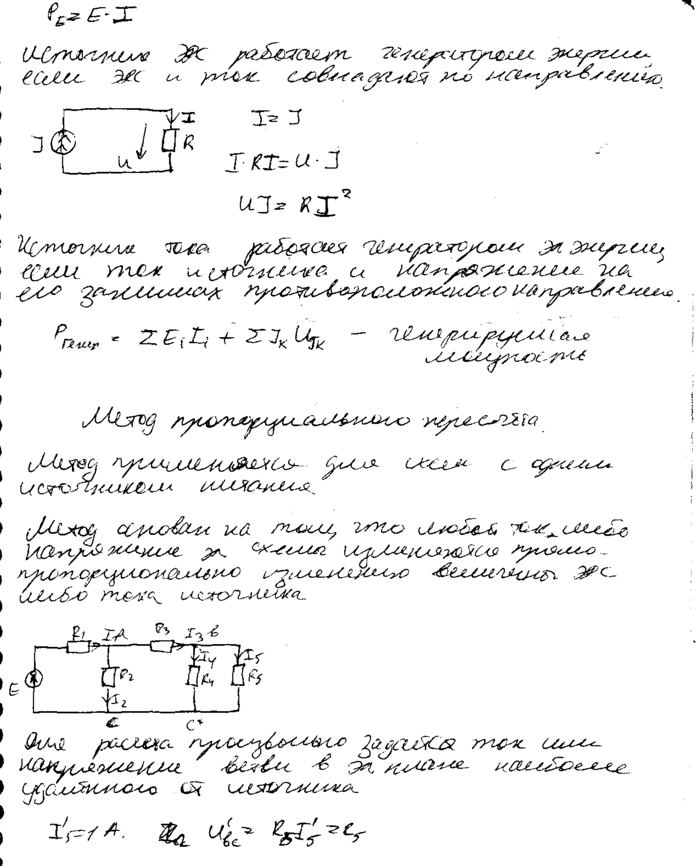 P_E = E · I
Источник ЭДС работает генератором энергии
если ЭДС и ток совпадают по направлению.
J U I R I = J
I · RI = U · J
UJ = RI²
Источник тока работает генератором эл энергии,
если ток источника и напряжение на
его зажимах противоположного направления.
P генер = ΣE_i I_i + ΣJ_k U_Jk – генерирующая
мощность
Метод пропорциального пересчёта.
Метод применяется для схем с одним
источником питания.
Метод основан на том, что любой ток либо
напряжение эл схемы изменяется прямо-
пропорционально изменению величины ЭДС
либо тока источника
R1 I A R3 I3 B
E R2 I2 I4 R4 I5 R5
C C*
Для расчета произвольно задаётся ток или
напряжение ветви в эл плане наиболее
удалённого от источника
I'5 = 1 A. U'BC = R5 I'5 = R5